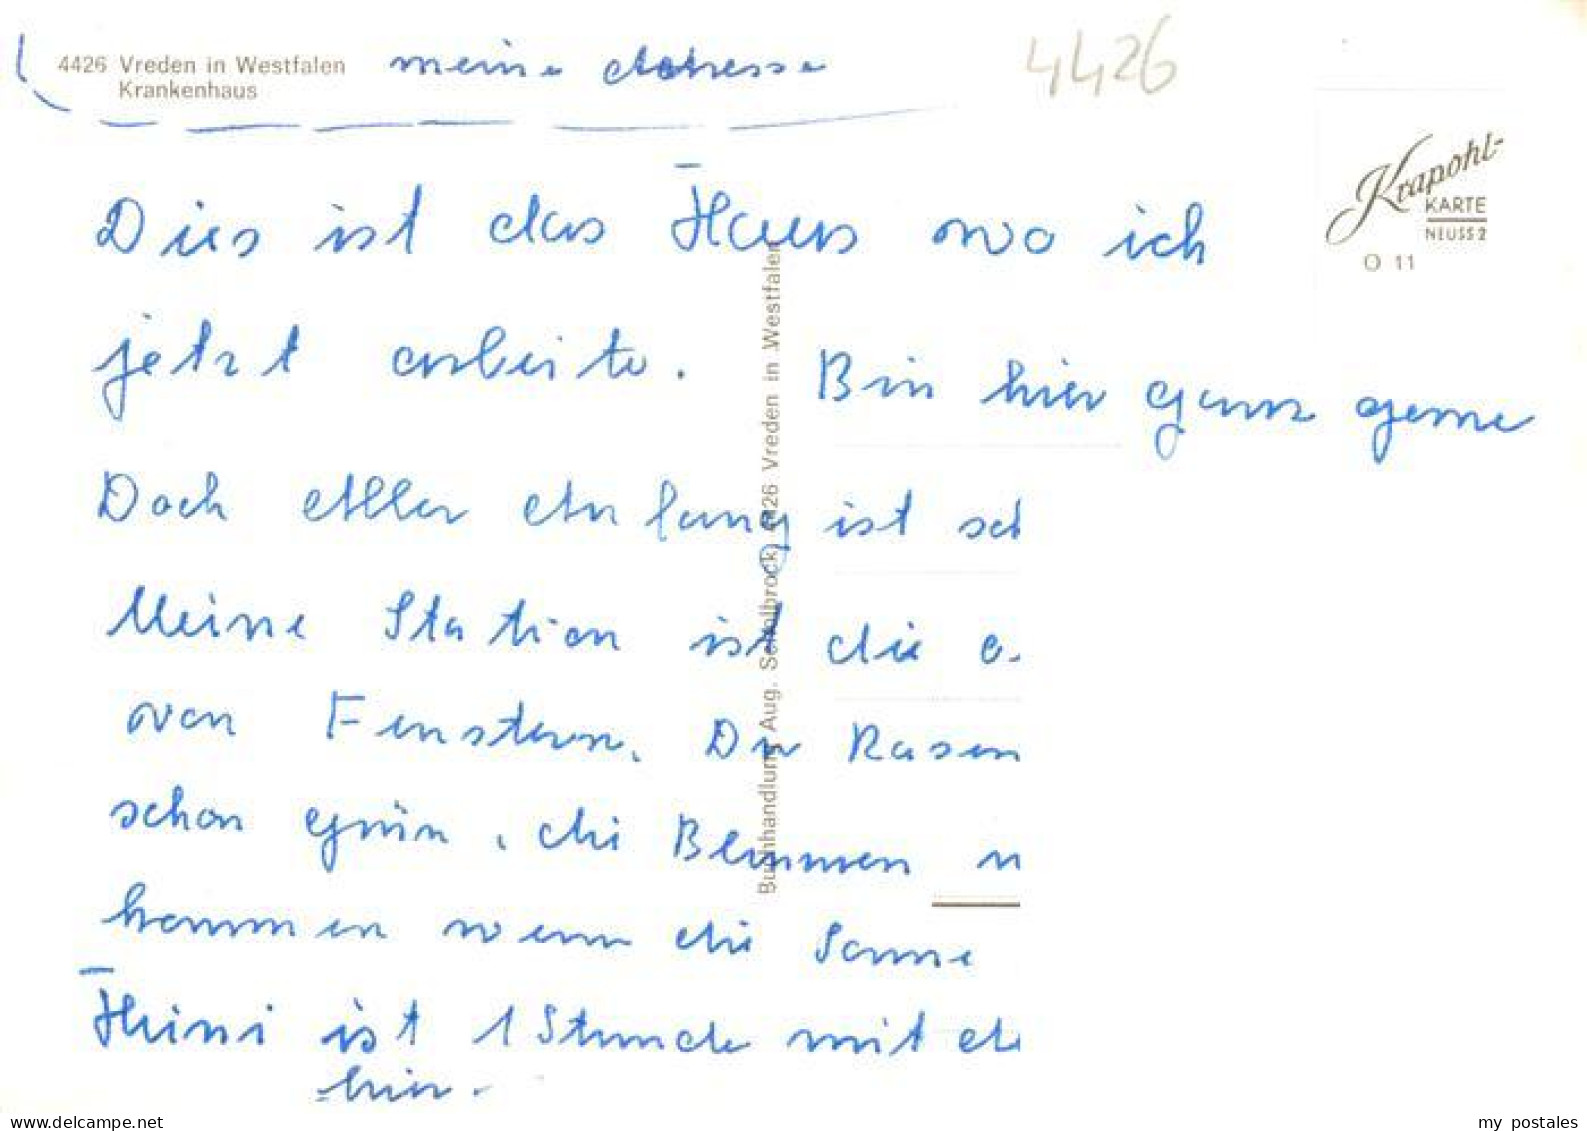 4426 Vreden in Westfalen
Krankenhaus
meine Adresse
4426
Krapohl-
KARTE
NEUSS 2
O 11
Dies ist das Haus wo ich
jetzt arbeite. Bin hier ganz gerne
Doch Aller Anfang ist sch
Meine Station ist die
von Fenstern. Der Rasen
schon grün, die Blumen
kommen wenn die Sonne
Heini ist 1 Stunde mit de
hier.
Buchhandlung Aug. Schallbrock, 4426 Vreden in Westfalen
www.delcampe.net
my_postales